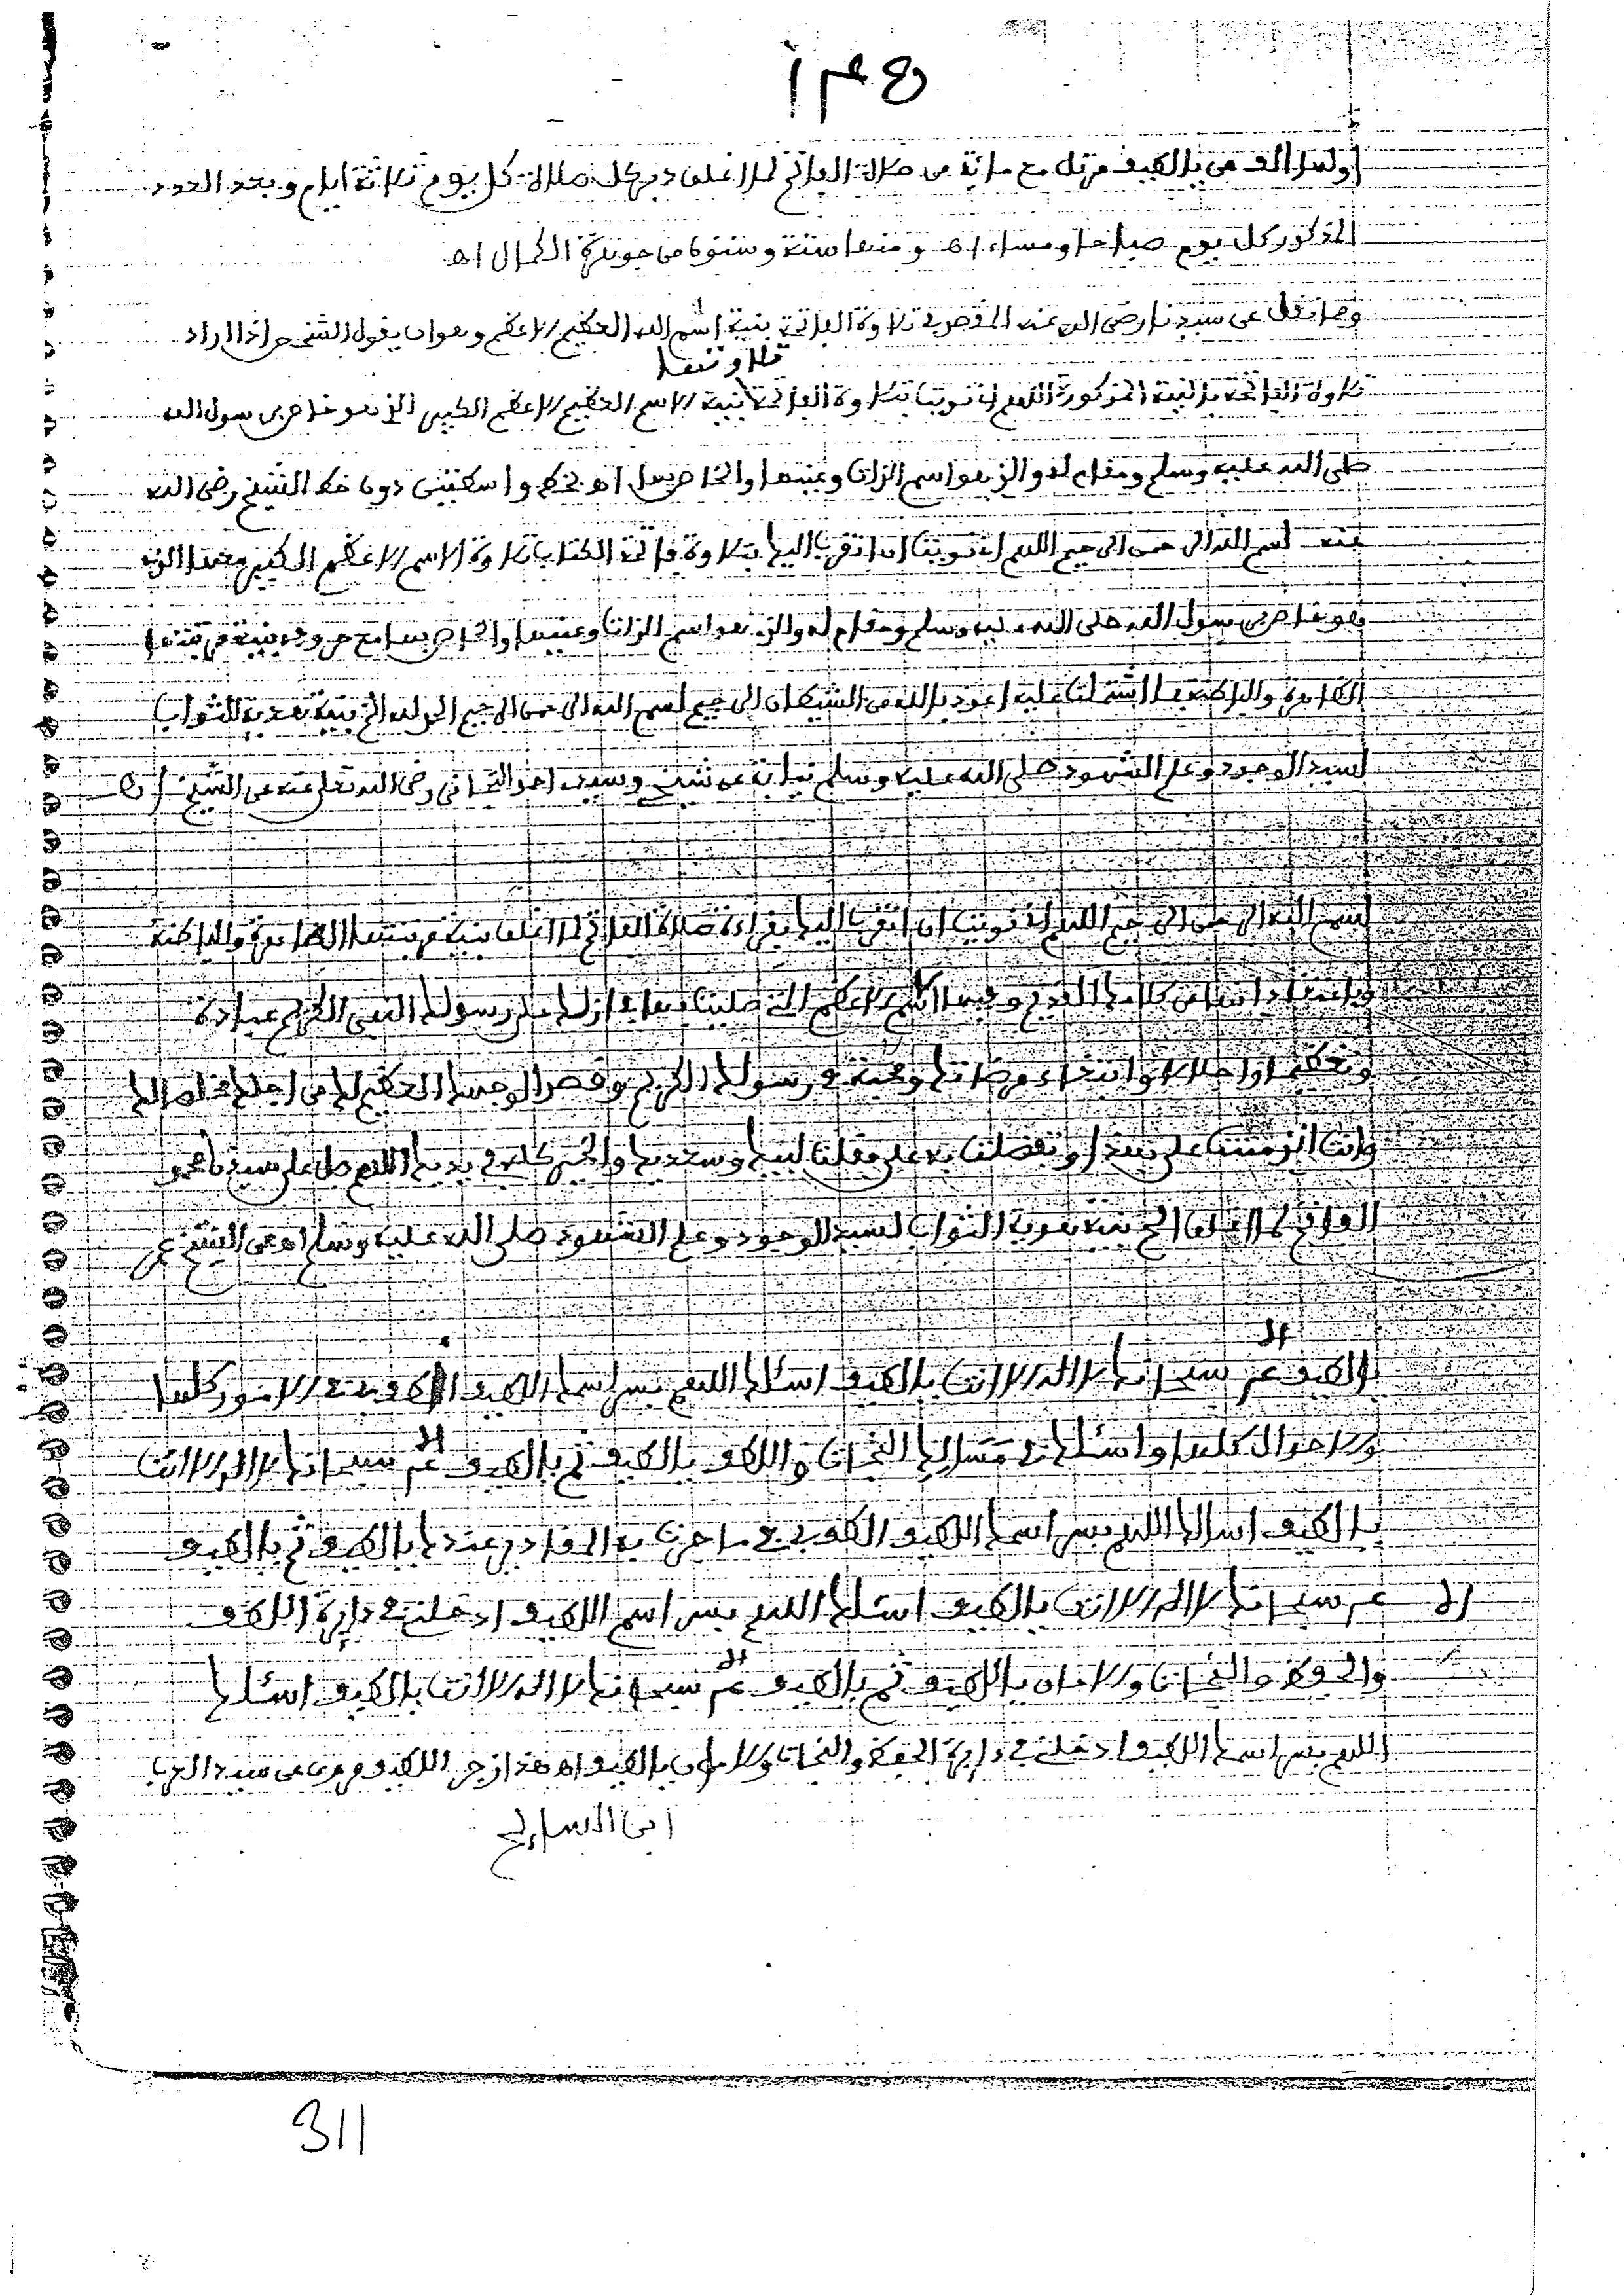 أولها ألف من يا لطيف مرتل مع مائة من صلاة الفاتح لما اغلق دبر كل صلاة كل يوم ثلاثة أيام وبعد العدد
المذكور كل يوم صباحا ومساء اه ومنها ستة وستون من جوهرة الكمال اه
ومما نقل عن سيدنا رضي الله عنه المقصد في تلاوة الفاتحة بنية اسم الله العظيم الاعظم وهو ان يقول الشخص اذا اراد
تلاوتها
تلاوة الفاتحة بالنية المذكورة اللهم اني نويت بتلاوة الفاتحة بنية الاسم العظيم الاعظم الكبير الذي هو خاص برسول الله
صلى الله عليه وسلم ومقام له والذي هو اسم الذات وعينها والخاص بها اه بخط واسكنيني دون خط الشيخ رضي الله
عنه بسم الله الرحمن الرحيم اللهم اني نويت ان اتقرب اليك بتلاوة فاتحة الكتاب تلاوة الاسم الاعظم الكبير وهذا الذي
هو خاص برسول الله صلى الله عليه وسلم ومقام له والذي هو اسم الذات وعينها والخاص بها مع حروفه بنية مرتبتها
الظاهرة والباطنة وما اشتملت عليه اعوذ بالله من الشيطان الرجيم بسم الله الرحمن الرحيم الحمد لله الخ بنية هدية الثواب
لسيد الوجود وعلم الشهود صلى الله عليه وسلم نيابة عن شيخي وسيدي احمد التجاني رضي الله تعلى عنه عن الشيخ
بسم الله الرحمن الرحيم اللهم اني نويت ان اتقرب اليك بقراءة صلاة الفاتح لما اغلق بنية مرتبتها الظاهرة والباطنة
وباعتقاد انها من كلامك القديم وفيها اسمك الاعظم التي صليت بها في ازلك على رسولك النبي الكريم عبادة
وتعظيما واجلالا وابتغاء مرضاتك ومحبة في رسولك الكريم وقصدا لوجهك العظيم لك من اجلك خالصا لك
وانت الذي مننت علي بهذا وتفضلت به علي فقلت لبيك وسعديك والخير كله في يديك اللهم صل على سيدنا محمد
الفاتح لما اغلق الخ بنية هدية الثواب لسيد الوجود وعلم الشهود صلى الله عليه وسلم اه عن الشيخ عمر
يا لطيف سبحانك لا اله الا انت يا لطيف اسئلك اللهم بسر اسمك اللطيف الطف بي في الامور كلها
والاحوال كلها واسئلك النجات واللطف يا لطيف ثم يا لطيف سبحانك لا اله الا انت
يا لطيف اسالك اللهم بسر اسمك اللطيف الطف بي في ما جرت به المقادير عندك يا لطيف ثم يا لطيف
سبحانك لا اله الا انت يا لطيف اسئلك اللهم بسر اسمك اللطيف ادخلني في دايرة اللطف
والحفظ والنجات والامان يا لطيف ثم يا لطيف سبحانك لا اله الا انت يا لطيف اسئلك
اللهم بسر اسمك اللطيف ادخلني في دايرة الحفظ والنجات والامان يا لطيف اه هذا زجر اللطيف مروي عن سيد العربي
ابن السايح
311